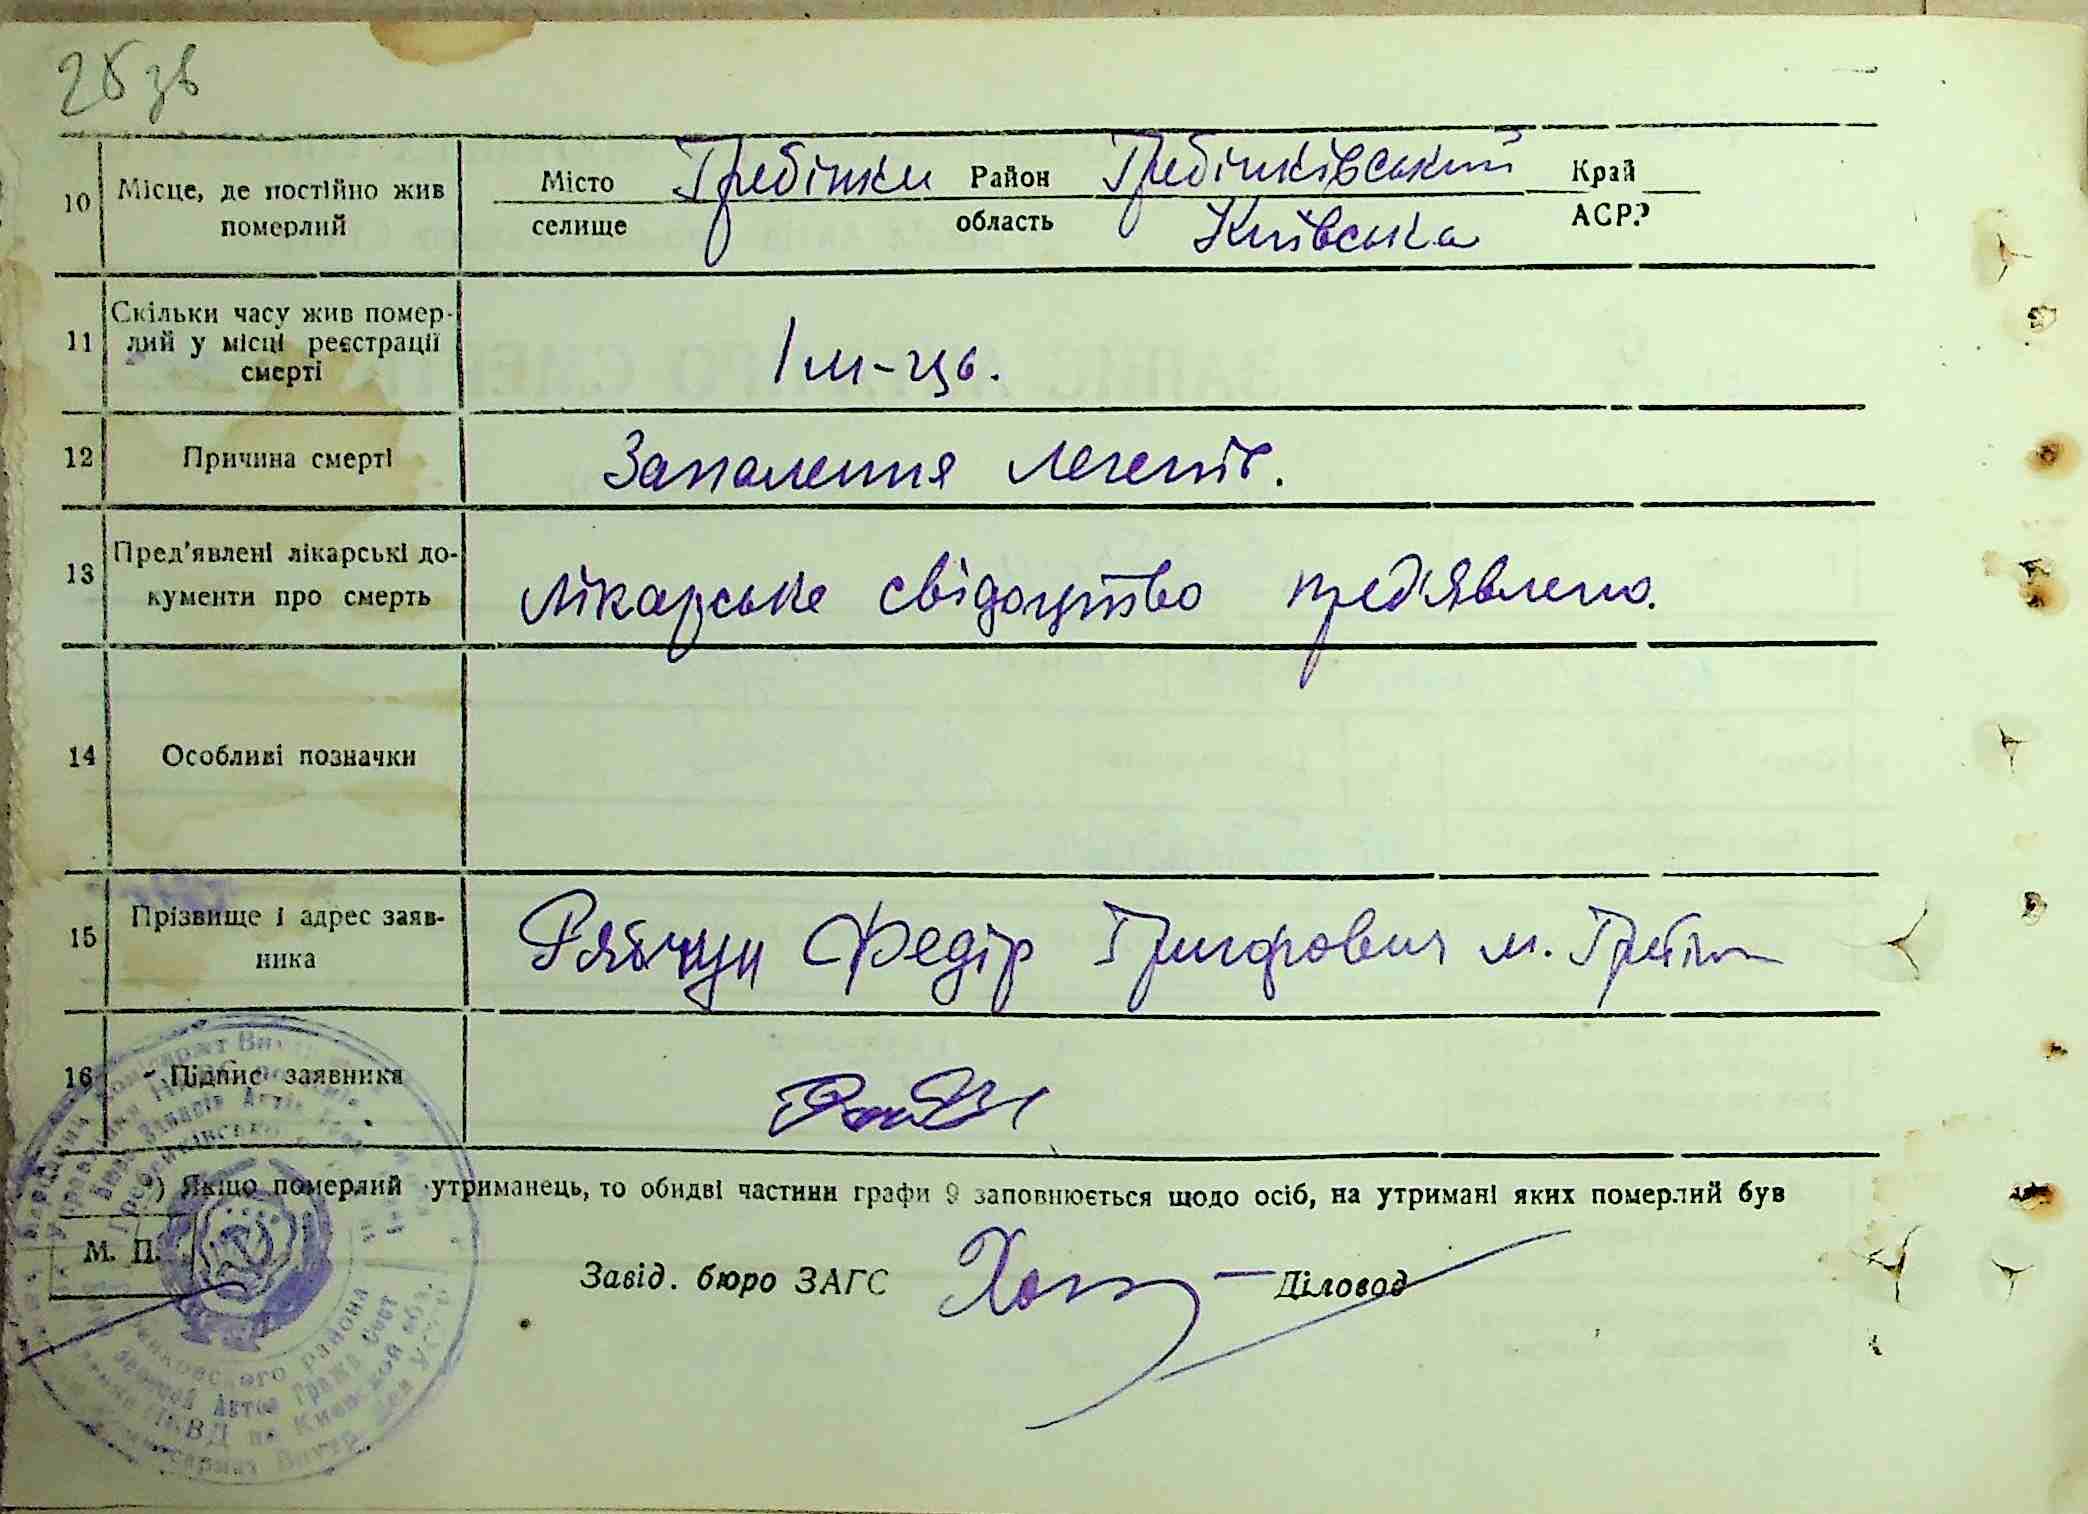 25 зв
10 Місце, де постійно жив померлий Місто Гребінки Район Гребінківський Край
селище область Київська АСР?
11 Скільки часу жив помер-
лий у місці реєстрації
смерті
1 м-ць.
12 Причина смерті Запалення легенів.
13 Пред'явлені лікарські до-
кументи про смерть
Лікарське свідоцтво пред'явлено.
14 Особливі позначки
15 Прізвище і адрес заяв-
ника
Рябчун Федір Григорович м. Гребінки
16 Підпис заявника
*) Якщо померлий утриманець, то обидві частини графи 9 заповнюється щодо осіб, на утримані яких померлий був
М. П.
Завід. бюро ЗАГС Діловод